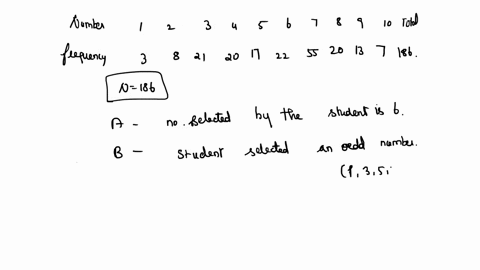 Number 1 2 3 4 5 6 7 8 9 10 Total
frequency 3 8 21 20 17 22 55 20 13 7 186.
N=186
A - no. selected by the student is 6.
B - student selected an odd number.
(1, 3, 5,